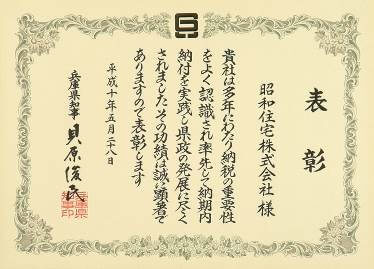 表彰
昭和住宅株式会社 様
貴社は多年にわたり納税の重要性
をよく認識され率先して納期内
納付を実践し県政の発展に尽く
されましたその功績は誠に顕著で
ありますので表彰します
平成十年五月二十八日
兵庫県知事 貝原俊民
兵庫県知事印